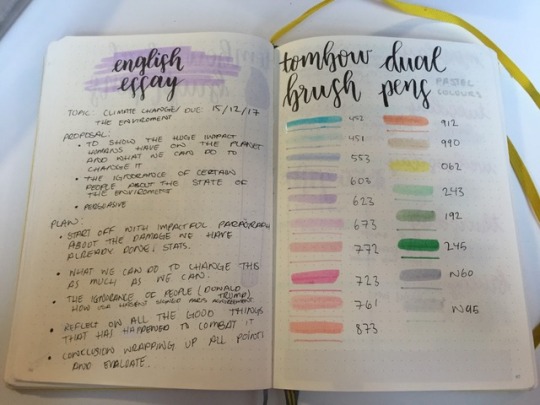 english
essay
TOPIC: CLIMATE CHANGE/ DUE: 15/12/17
THE ENVIROMENT
PROPOSAL:
• TO SHOW THE HUGE IMPACT
HUMANS HAVE ON THE PLANET
AND WHAT WE CAN DO TO
CHANGE IT
• THE IGNORANCE OF CERTAIN
PEOPLE ABOUT THE STATE OF
THE ENVIROMENT
• PERSUASIVE
PLAN:
• START OFF WITH IMPACTFUL PARAGRAPH
ABOUT THE DAMAGE WE HAVE
ALREADY DONE, STATS.
• WHAT WE CAN DO TO CHANGE THIS
AS MUCH AS WE CAN.
• THE IGNORANCE OF PEOPLE (DONALD
TRUMP)
HOW OUR
• REFLECT ON ALL THE GOOD THINGS
THAT HAS HAPPENED TO COMBAT IT
• CONCLUSION WRAPPING UP ALL POINTS
AND EVALUATE.
tombow dual
brush pens
PASTEL
COLOURS
452
451
553
603
623
673
772
723
761
873
912
990
062
243
192
245
N60
N95